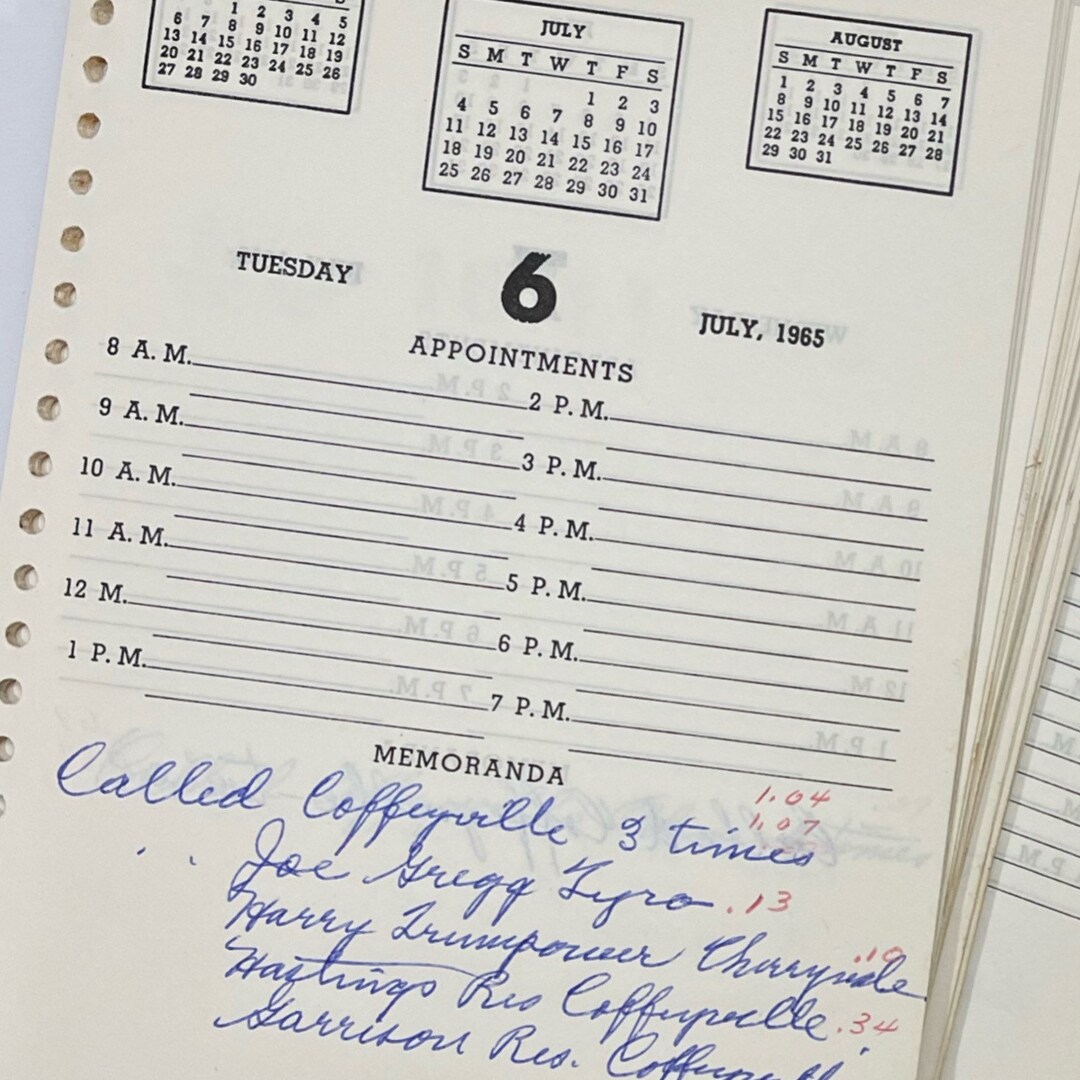 1 2 3 4 5
6 7 8 9 10 11 12
13 14 15 16 17 18 19
20 21 22 23 24 25 26
27 28 29 30
JULY
S M T W T F S
1 2 3
4 5 6 7 8 9 10
11 12 13 14 15 16 17
18 19 20 21 22 23 24
25 26 27 28 29 30 31
AUGUST
S M T W T F S
1 2 3 4 5 6 7
8 9 10 11 12 13 14
15 16 17 18 19 20 21
22 23 24 25 26 27 28
29 30 31
TUESDAY 6 JULY, 1965
APPOINTMENTS
8 A. M. 2 P. M.
9 A. M. 3 P. M.
10 A. M. 4 P. M.
11 A. M. 5 P. M.
12 M. 6 P. M.
1 P. M. 7 P. M.
MEMORANDA
1.04
1.07
Called Coffeyville 3 times
Joe Gregg Tyro .13
Harry Trumpower Cherryvale .10
Hastings Res Coffeyville .34
Garrison Res.